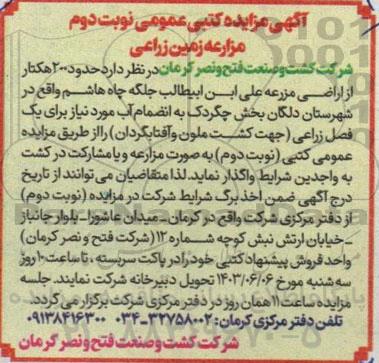 آگهی مزایده کتبی عمومی نوبت دوم
مزارعه زمین زراعی
شرکت کشت و صنعت فتح و نصر کرمان در نظر دارد حدود ۲۰۰ هکتار
از اراضی مزرعه علی ابن ابیطالب جلگه چاه هاشم واقع در
شهرستان دلگان بخش چگردک به انضمام آب مورد نیاز برای یک
فصل زراعی (جهت کشت ملون و آفتابگردان) را از طریق مزایده
عمومی کتبی (نوبت دوم) به صورت مزارعه و یا مشارکت در کشت
به واجدین شرایط واگذار نماید. لذا متقاضیان می توانند از تاریخ
درج آگهی ضمن اخذ برگ شرایط شرکت در مزایده (نوبت دوم)
از دفتر مرکزی شرکت واقع در کرمان ـ میدان عاشورا ـ بلوار جانباز
ـ خیابان ارتش نبش کوچه شماره ۱۲ (شرکت فتح و نصر کرمان)
واحد فروش پیشنهاد کتبی خود را در پاکت سربسته ، تا ساعت ۱۰ روز
سه شنبه مورخ ۱۴۰۳/۰۶/۰۶ تحویل دبیرخانه شرکت نمایند. جلسه
مزایده ساعت ۱۱ همان روز در دفتر مرکزی شرکت برگزار می گردد.
تلفن دفتر مرکزی کرمان: ۳۲۷۵۸۰۰۲-۰۳۴ ۰۹۱۳۸۴۱۶۳۰۰
شرکت کشت و صنعت فتح و نصر کرمان